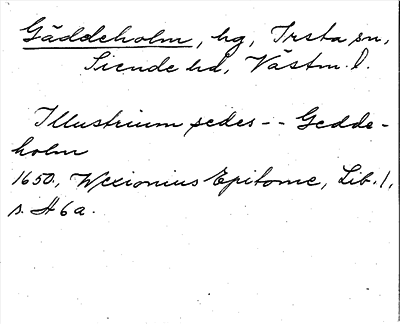 Gäddeholm, hg, Irsta sn,
Siende hd, Västm. l.
Illustrium sedes -- Gedde-
holm
1650, Wexionius Epitome, Lib. 1,
s. H 6 a.